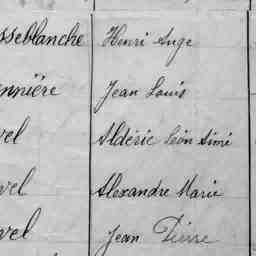 sseblanche Henri Ange
nnière Jean Louis
vel Aldéric Léon Aimé
vel Alexandre Marie
vel Jean Pierre